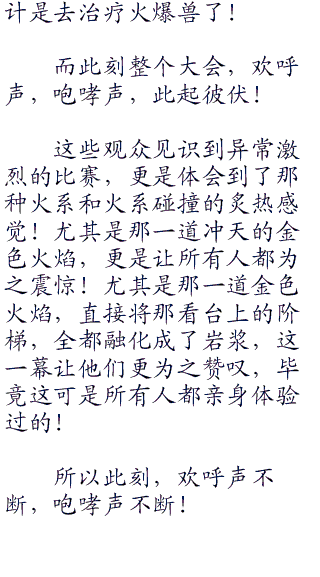 计是去治疗火爆兽了！
而此刻整个大会，欢呼
声，咆哮声，此起彼伏！
这些观众见识到异常激
烈的比赛，更是体会到了那
种火系和火系碰撞的炙热感
觉！尤其是那一道冲天的金
色火焰，更是让所有人都为
之震惊！尤其是那一道金色
火焰，直接将那看台上的阶
梯，全都融化成了岩浆，这
一幕让他们更为之赞叹，毕
竟这可是所有人都亲身体验
过的！
所以此刻，欢呼声不
断，咆哮声不断！